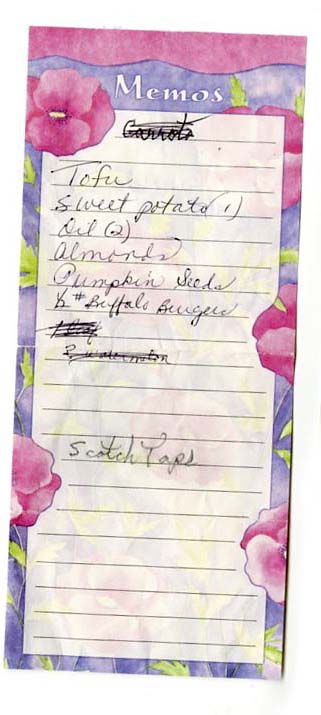 Memos
Carrots
Tofu
Sweet potato (1)
Oil (2)
Almonds
Pumpkin Seeds
½ # Buffalo Burgers
Scotch Tape